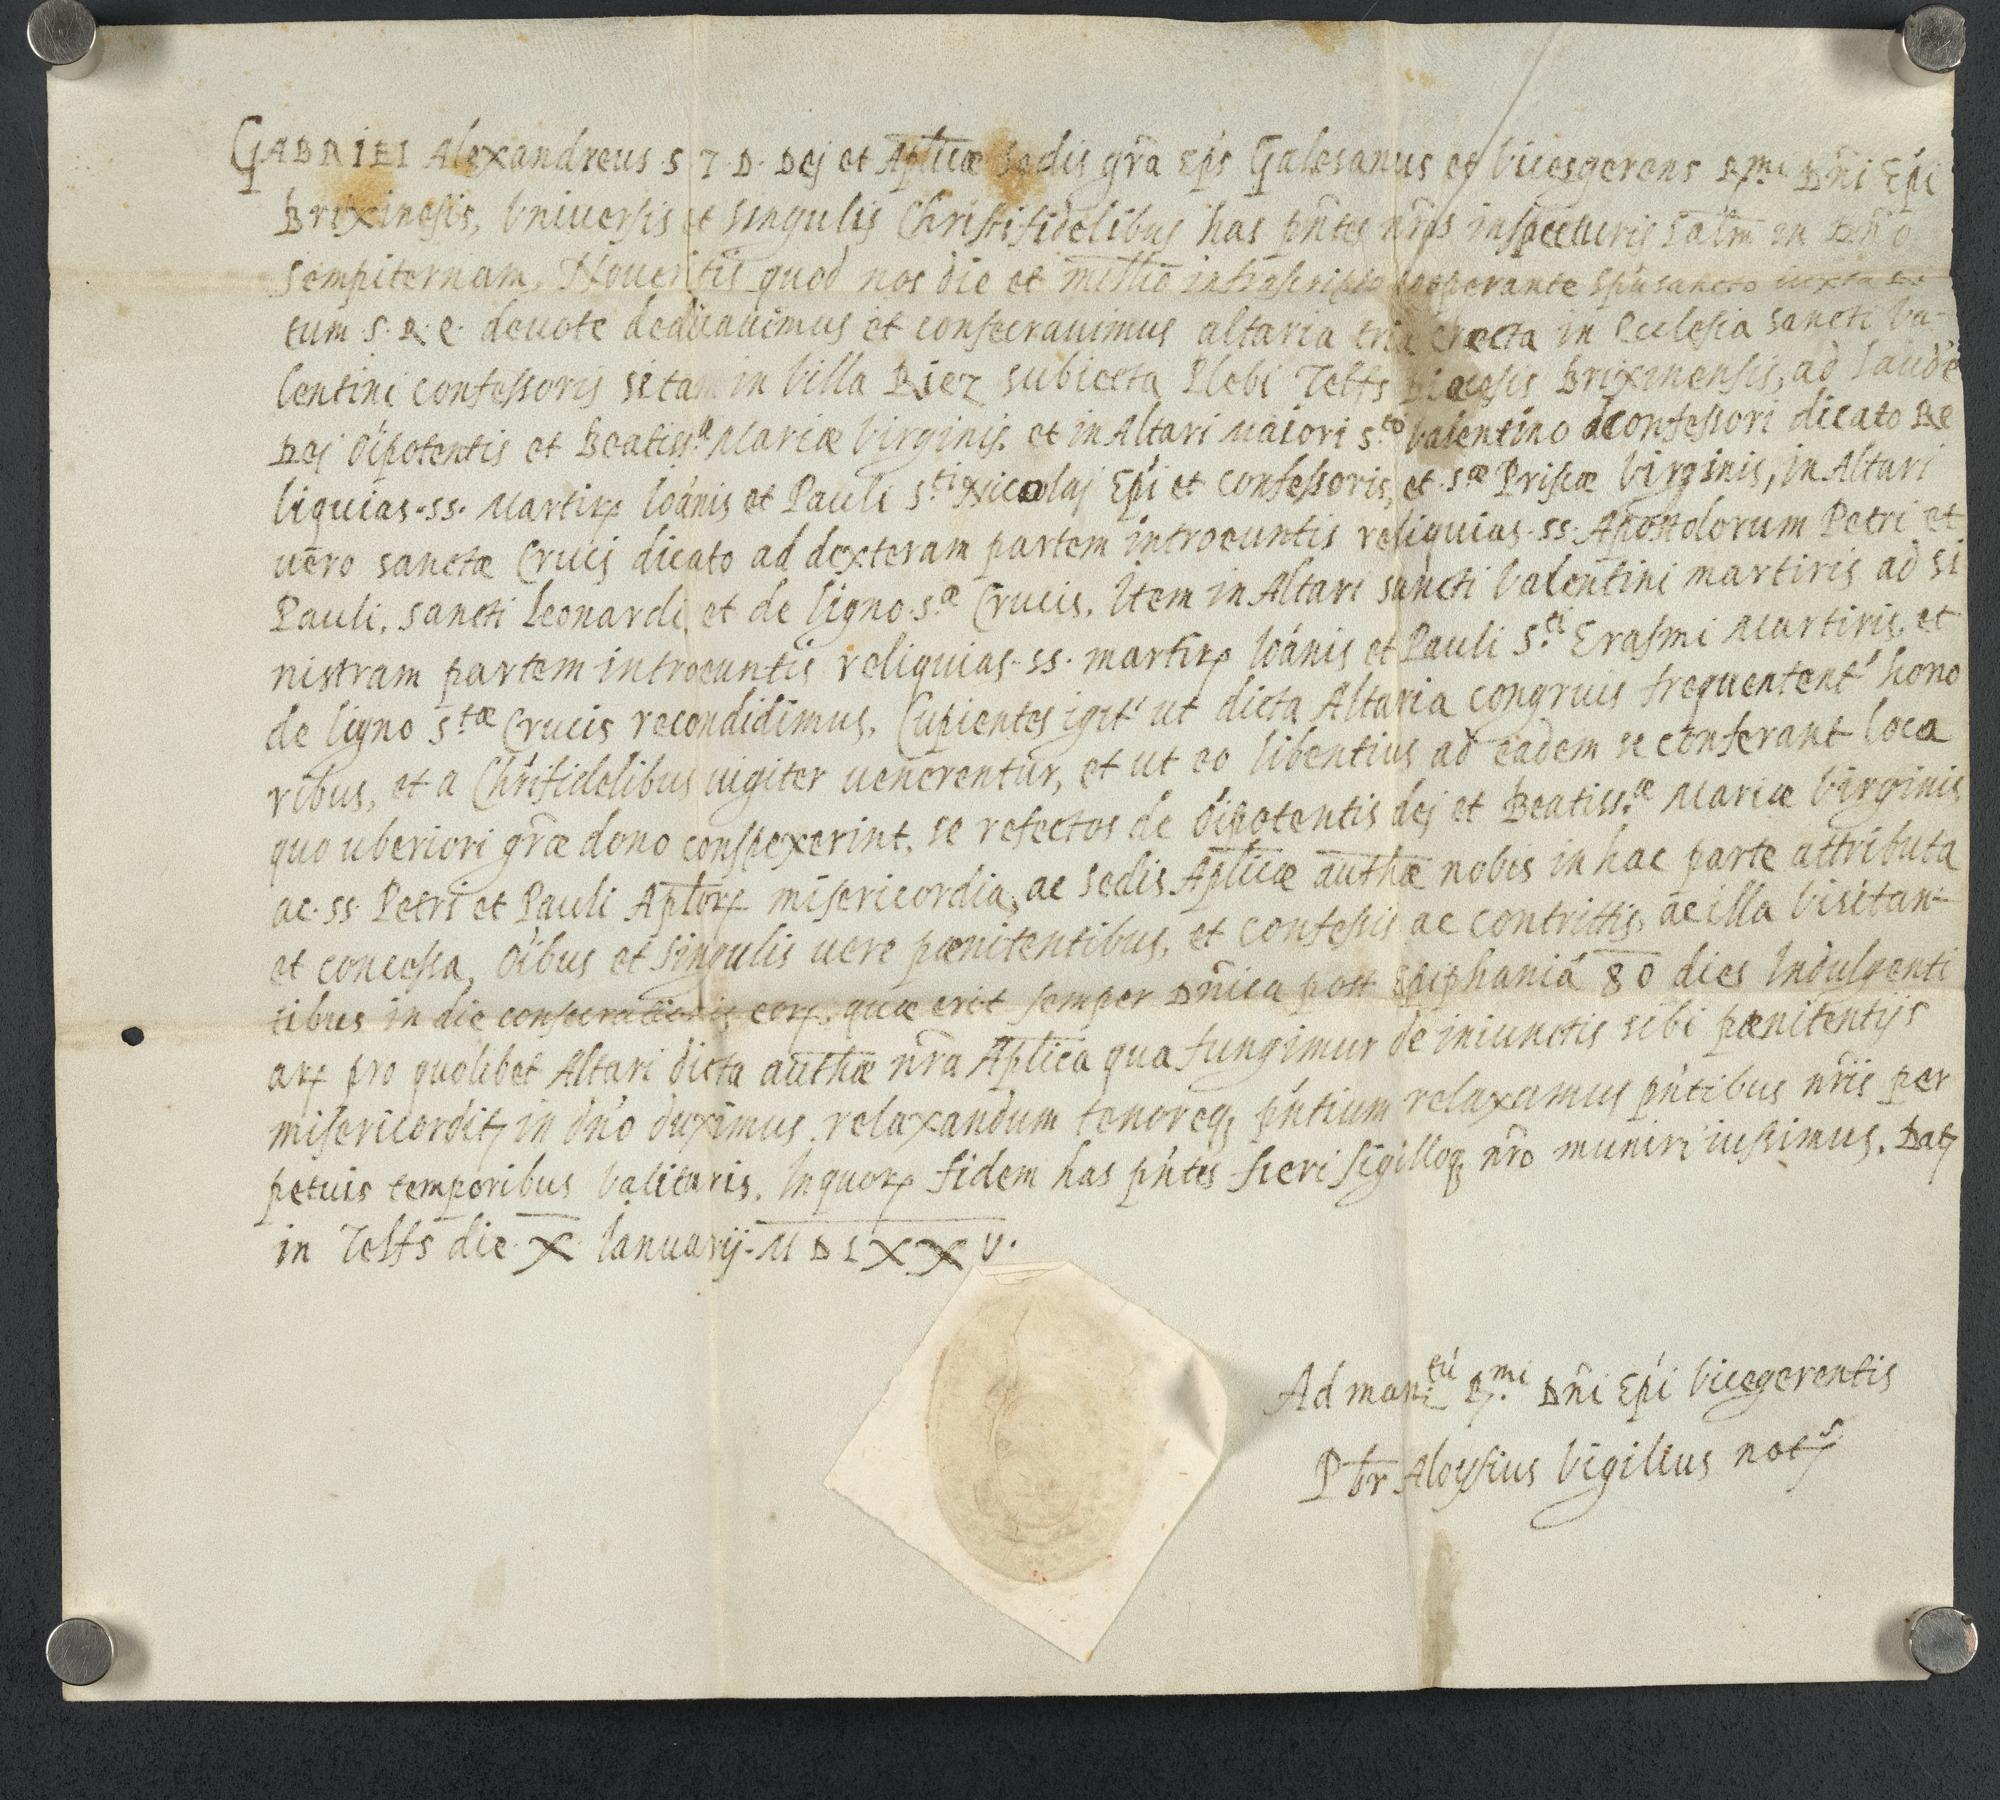 GABRIEL Alexandreus S. T. D. Dej et Aplicæ sedis gr̃a Ep̃s Galesanus et Vicesgerens R.mi Dñi Ep̃i
Brixineñsis, Vniversis et singulis Christifidelibus has pñtes nr̃as inspecturis Saltm̃ in Dño
sempiternam. Noveritis quod nos die et mill̃io infrascripto cooperante Spũ sancto iuxta Ri-
tum S. R. E. devote dedicavimus et consecravimus altaria tria erecta in Ecclesia sancti Va-
lentini confessoris sitam in Villa Riez subiecta Plebi Telfs Diocesis Brixinensis, ad laudẽ
Dej õipotentis et Beatiss.æ Mariæ Virginis. et in Altari Maiori S.to Valentino Confessori dicato Re
liquias .ss. Martirꝝ Ioãnis et Pauli S.ti Nicolaj Ep̃i et confessoris, et S.æ Priscæ Virginis, in Altari
vero sanctæ Crucis dicato ad dexteram partem introeuntis reliquias .ss. Apostolorum Petri et
Pauli, sancti Leonardi, et de ligno S.æ Crucis. Item in Altari sancti Valentini martiris ad si
nistram partem introeuntis reliquias .ss. martirꝝ Ioãnis et Pauli S.ti Erasmi Martiris, et
de ligno S.tæ Crucis recondidimus. Cupientes igit' ut dicta Altaria congruis frequentent' hono
ribus, et a Chr̃ifidelibus iugiter venerentur, et ut eo libentius ad eadem se conferant loca
quo uberiori gr̃æ dono conspexerint, se refectos de õipotentis dej et Beatiss.æ Mariæ Virginis
ac .ss. Petri et Pauli Aplorꝝ misericordia, ac sedis Aplicæ authæ nobis in hac parte attributa
et concessa, õibus et singulis vere pænitentibus, et confessis ac contrittis, ac illa visitan-
tibus in die consecrationis eorꝝ, quæ erit semper Dñica post Epiphaniã 80 dies Indulgenti
arꝝ pro quolibet Altari dicta authæ nr̃a Aplica qua fungimur de iniunctis sibi pænitentijs
misericordit' in dño duximus relaxandum tenoreq, pñtium relaxamus pñtibus nr̃is per
petuis temporibus valituris. In quorꝝ fidem has pñtes fieri sigilloq, nr̃o muniri iussimus. Dat'
in Telfs die X Ianuarij M D L X X V.
Ad man.tũ R.mi Dñi Ep̃i Vicegerentis
Pbr̃ Aloysius Vigilius not.s